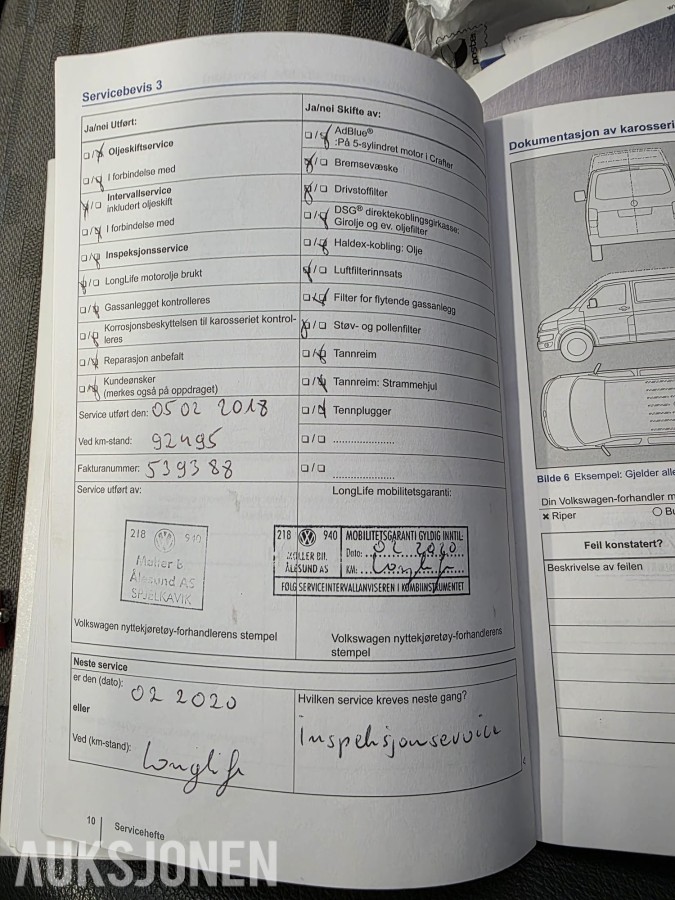 Servicebevis 3
Ja/nei Utført:
Oljeskiftservice
I forbindelse med
Intervallservice
inkludert oljeskift
I forbindelse med
Inspeksjonsservice
LongLife motorolje brukt
Gassanlegget kontrolleres
Korrosjonsbeskyttelsen til karosseriet kontrol-
leres
Reparasjon anbefalt
Kundeønsker
(merkes også på oppdraget)
Service utført den: 05 02 2018
Ved km-stand: 92495
Fakturanummer: 539388
Ja/nei Skifte av:
AdBlue®
:På 5-sylindret motor i Crafter
Bremsevæske
Drivstoffilter
DSG® direktekoblingsgirkasse:
Girolje og ev. oljefilter
Haldex-kobling: Olje
Luftfilterinnsats
Filter for flytende gassanlegg
Støv- og pollenfilter
Tannreim
Tannreim: Strammehjul
Tennplugger
Service utført av:
218 940
Møller B
Ålesund AS
SPJELKAVIK
Volkswagen nyttekjøretøy-forhandlerens stempel
LongLife mobilitetsgaranti:
218 940
MØLLER BIL
ÅLESUND AS
MOBILITETSGARANTI GYLDIG INNTIL:
Dato: 02 2020
KM: Longlife
FØLG SERVICEINTERVALLANVISEREN I KOMBIINSTRUMENTET
Volkswagen nyttekjøretøy-forhandlerens
stempel
Neste service
er den (dato): 02 2020
eller
Ved (km-stand): Longlife
Hvilken service kreves neste gang?
Inspeksjonservice
10 Servicehefte
Dokumentasjon av karosseri
Bilde 6 Eksempel: Gjelder alle
Din Volkswagen-forhandler m
× Riper
Feil konstatert?
Beskrivelse av feilen
AUKSJONEN